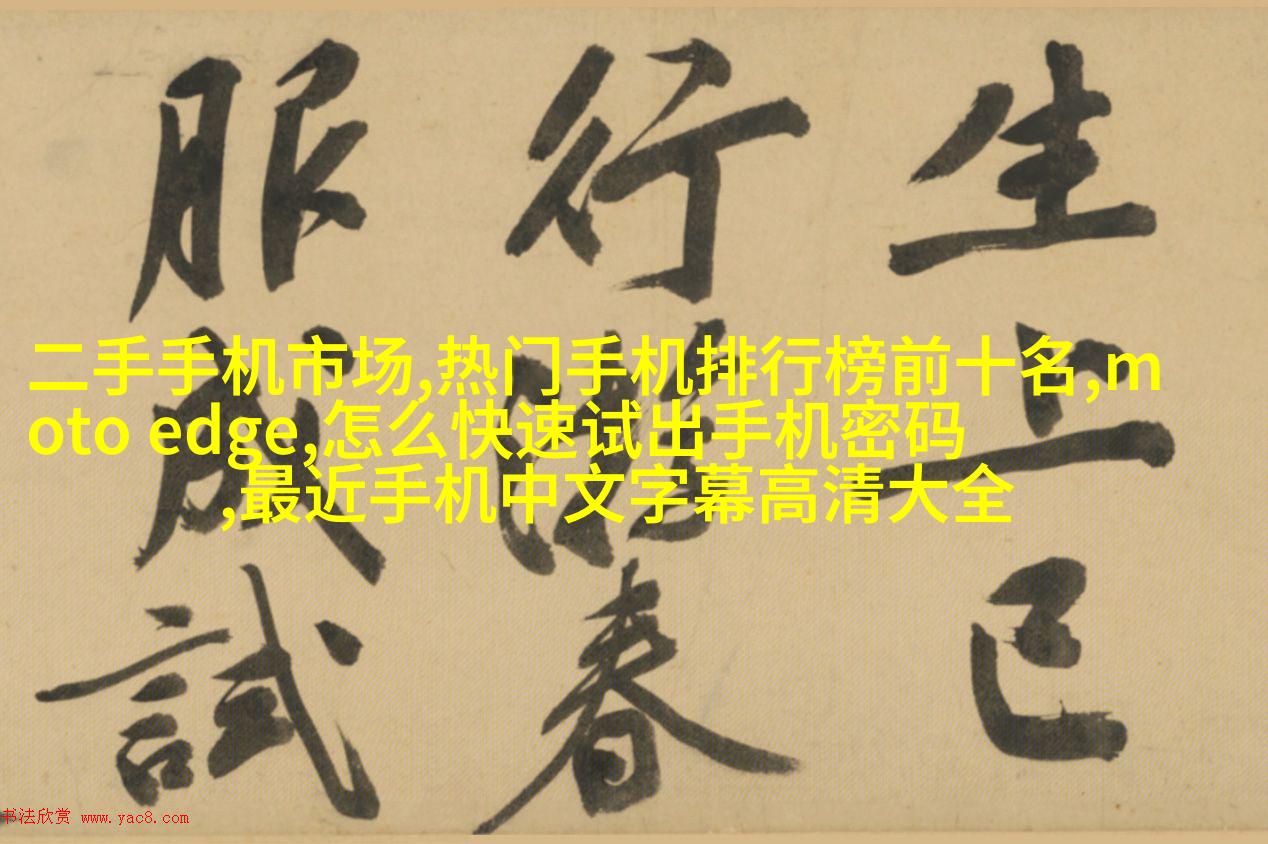 生上巳
行春
服成試
二手手机市场,热门手机排行榜前十名,m
oto edge,怎么快速试出手机密码
,最近手机中文字幕高清大全
书法欣赏 www.yac8.com